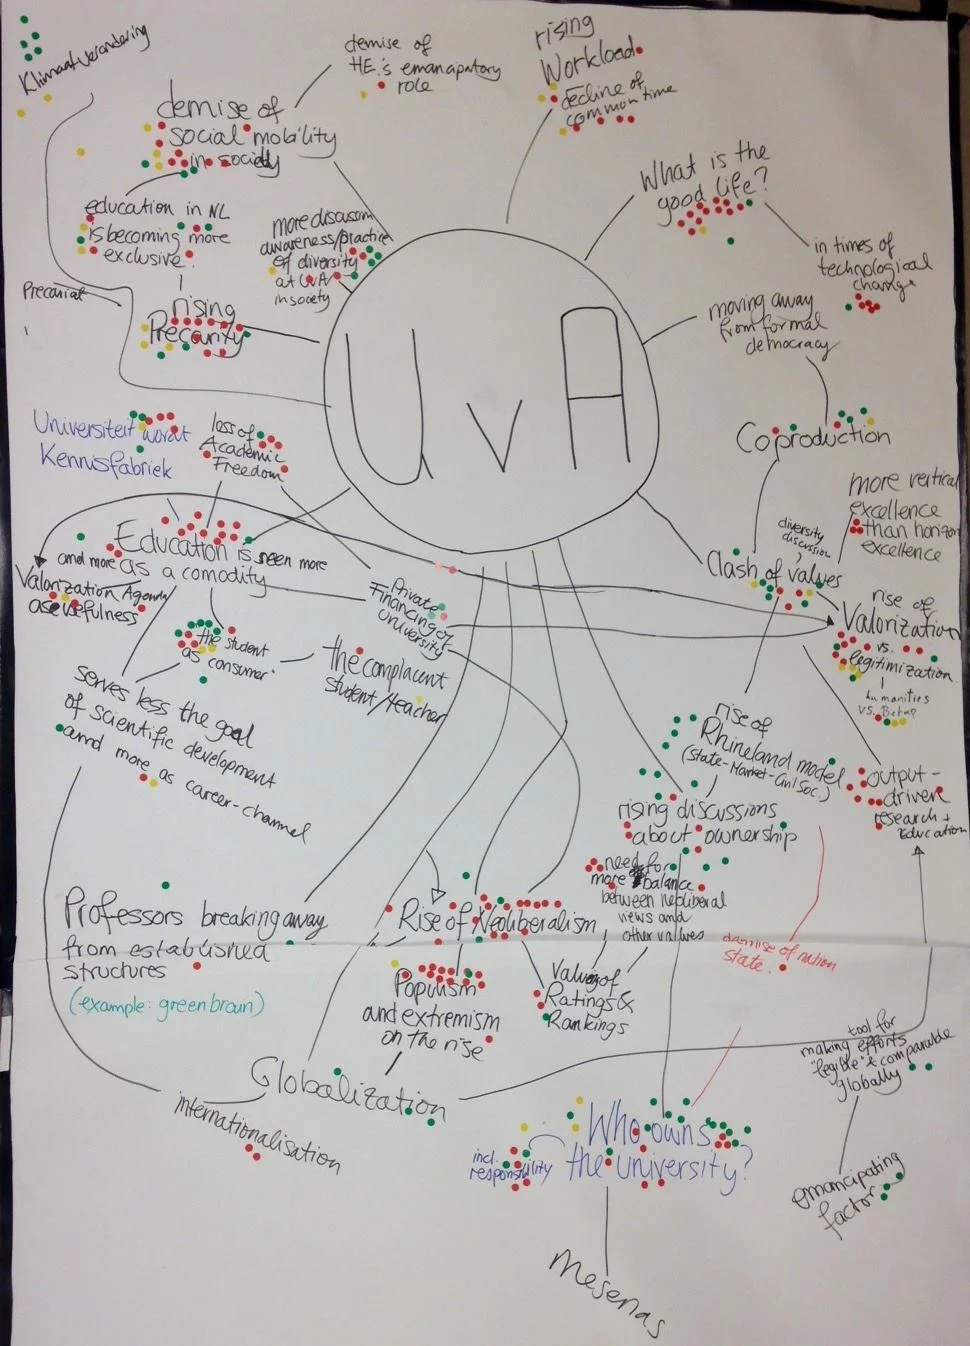 Klimaatverandering
demise of
HE's emancipatory
role
rising
Workload
decline of
common time
demise of
social mobility
in society
What is the
good life?
education in NL
is becoming more
exclusive
more discussion
awareness/practice
of diversity
at UvA
in society
in times of
technological
change
Precariat
rising
Precarity
UvA
moving away
from formal
democracy
Universiteit wordt
Kennisfabriek
loss of
Academic
Freedom
Coproduction
more vertical
excellence
than horizon
excellence
diversity
discussion
Education is seen more
as a comodity
and more
Valorization Agenda
as usefulness
Clash of values
Private
Financing of
University
rise of
Valorization
vs.
legitimization
humanities
vs. Beta?
the student
as consumer
the complacent
student/teacher
serves less the goal
of scientific development
and more as career-channel
rise of
Rhineland model
(State-Market-Civil Soc.)
output-
driven
research +
Education
rising discussions
about ownership
need for
more balance
between neoliberal
news and
other values
Professors breaking away
from established
structures
(example: green brain)
Rise of Neoliberalism
demise of nation
state.
Populism
and extremism
on the rise
Values of
Ratings &
Rankings
tool for
making efforts
"legible" & comparable
globally
Globalization
internationalisation
Who owns
the university?
incl.
responsibility
emancipating
factor
Mesenas